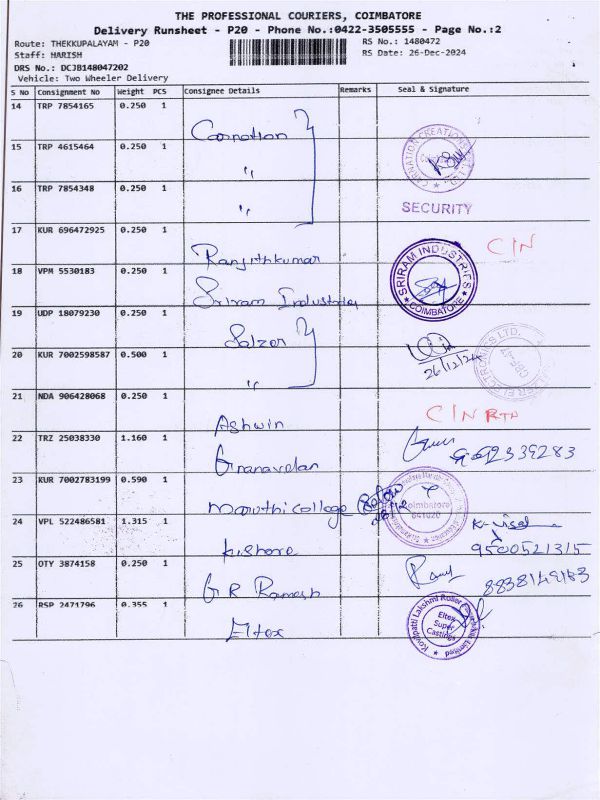 THE PROFESSIONAL COURIERS, COIMBATORE
Delivery Runsheet - P20 - Phone No.:0422-3505555 - Page No.:2
Route: THEKKUPALAYAM - P20
RS No.: 1480472
Staff: HARISH
RS Date: 26-Dec-2024
DRS No.: DCJB148047202
Vehicle: Two Wheeler Delivery
S No Consignment No Weight PCS Consignee Details Remarks Seal & Signature
14 TRP 7854165 0.250 1 Carnation
15 TRP 4615464 0.250 1 〃 CARNATION CREATIONS
16 TRP 7854348 0.250 1 〃 SECURITY
17 KUR 696472925 0.250 1 Ranjithkumar C/N
18 VPM 5530183 0.250 1 Sriram Industries SRIRAM INDUSTRIES COIMBATORE
19 UDP 18079230 0.250 1 Salzer
20 KUR 7002598587 0.500 1 〃 26/12/24
21 NDA 906428068 0.250 1 Ashwin C/N RTN
22 TRZ 25038330 1.160 1 Gnanavelan
23 KUR 7002783199 0.590 1 Maruthi College Coimbatore 641020
24 VPL 522486581 1.315 1 Kishore 9500521315
25 OTY 3874158 0.250 1 G R Ramesh
26 RSP 2471796 0.355 1 Eltex Eltex Super Castings